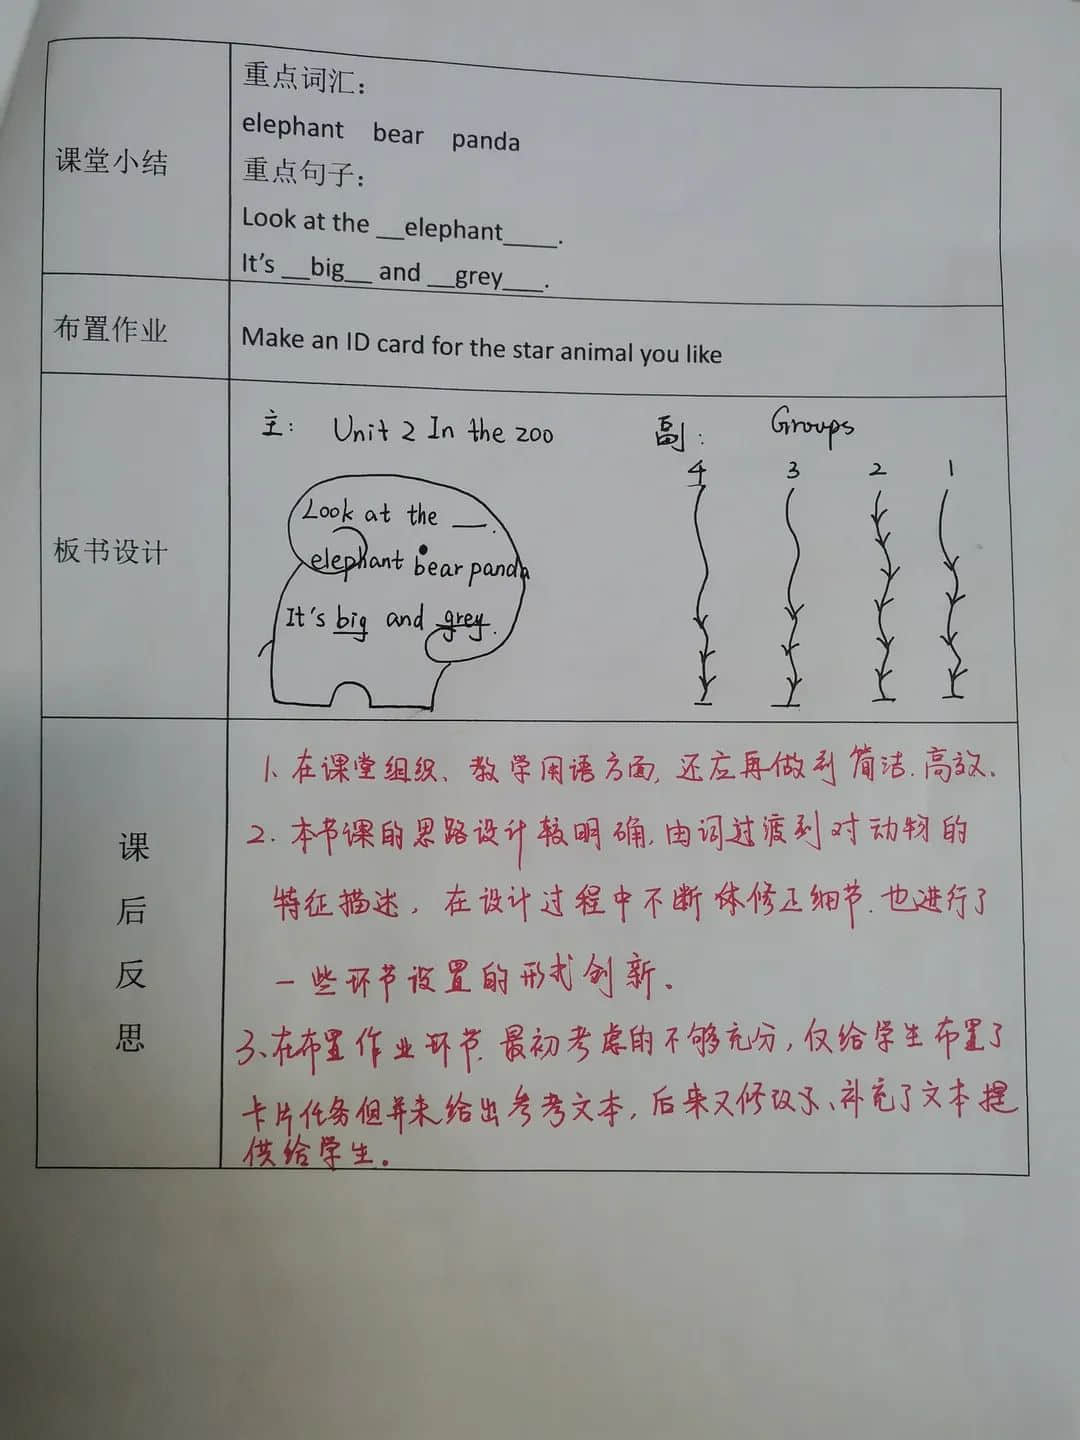 课堂小结
重点词汇：
elephant bear panda
重点句子：
Look at the __elephant____.
It's __big__ and __grey___.
布置作业
Make an ID card for the star animal you like
板书设计
主: Unit 2 In the zoo
Look at the __.
elephant bear panda
It's big and grey.
副: Groups
4 3 2 1
课后反思
1、在课堂组织、教学用语方面,还应再做到简洁、高效、
2、本节课的思路设计较明确,由词过渡到对动物的
特征描述，在设计过程中不断修正细节,也进行了
一些环节设置的形式创新。
3、在布置作业环节,最初考虑的不够充分，仅给学生布置了
卡片任务但并未给出参考文本，后来又修改了、补充了文本提
供给学生。